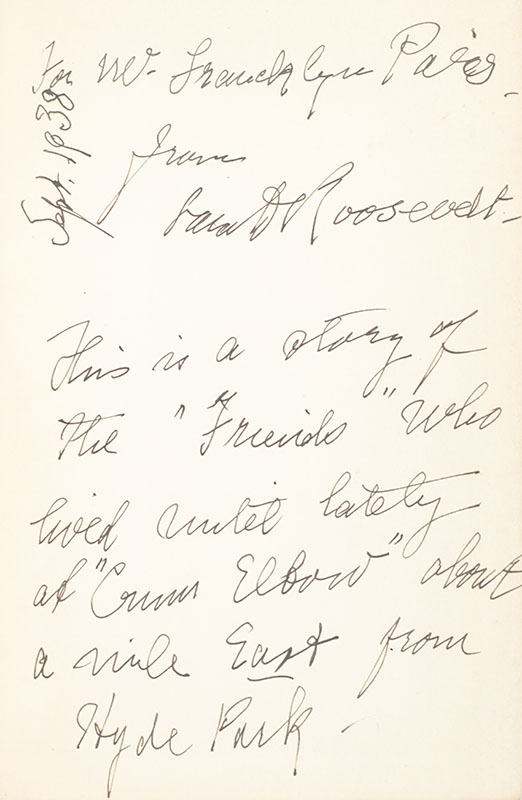 For Mr. Francklyn Paris -
Sept. 1938
from
Sara D Roosevelt -
This is a story of
the "Friends" who
lived until lately
at "Crum Elbow" about
a mile East from
Hyde Park -